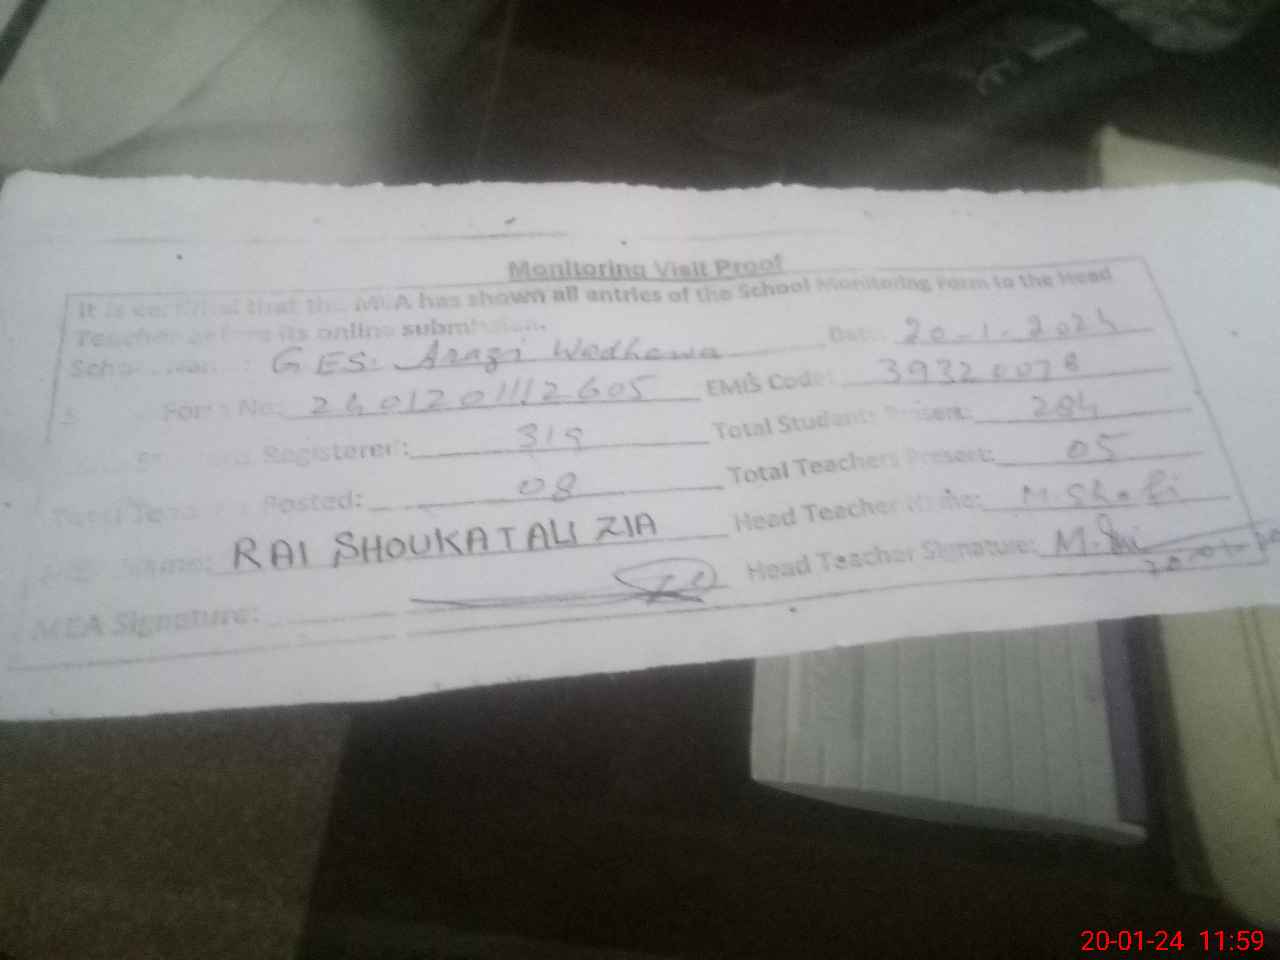 Monitoring Visit Proof
It is certified that the MEA has shown all entries of the School Monitoring Form to the Head
Teacher before its online submission.
School Name: GES. Arazi Wadhawa Date: 20-1-2024
Form No: 2401201112605 EMIS Code: 39320078
Students Registered: 319 Total Students Present: 284
Total Teachers Posted: 08 Total Teachers Present: 05
MEA Name: RAI SHOUKAT ALI ZIA Head Teacher Name: M. Shafi
MEA Signature: Head Teacher Signature: M.
20-01-24 11:59